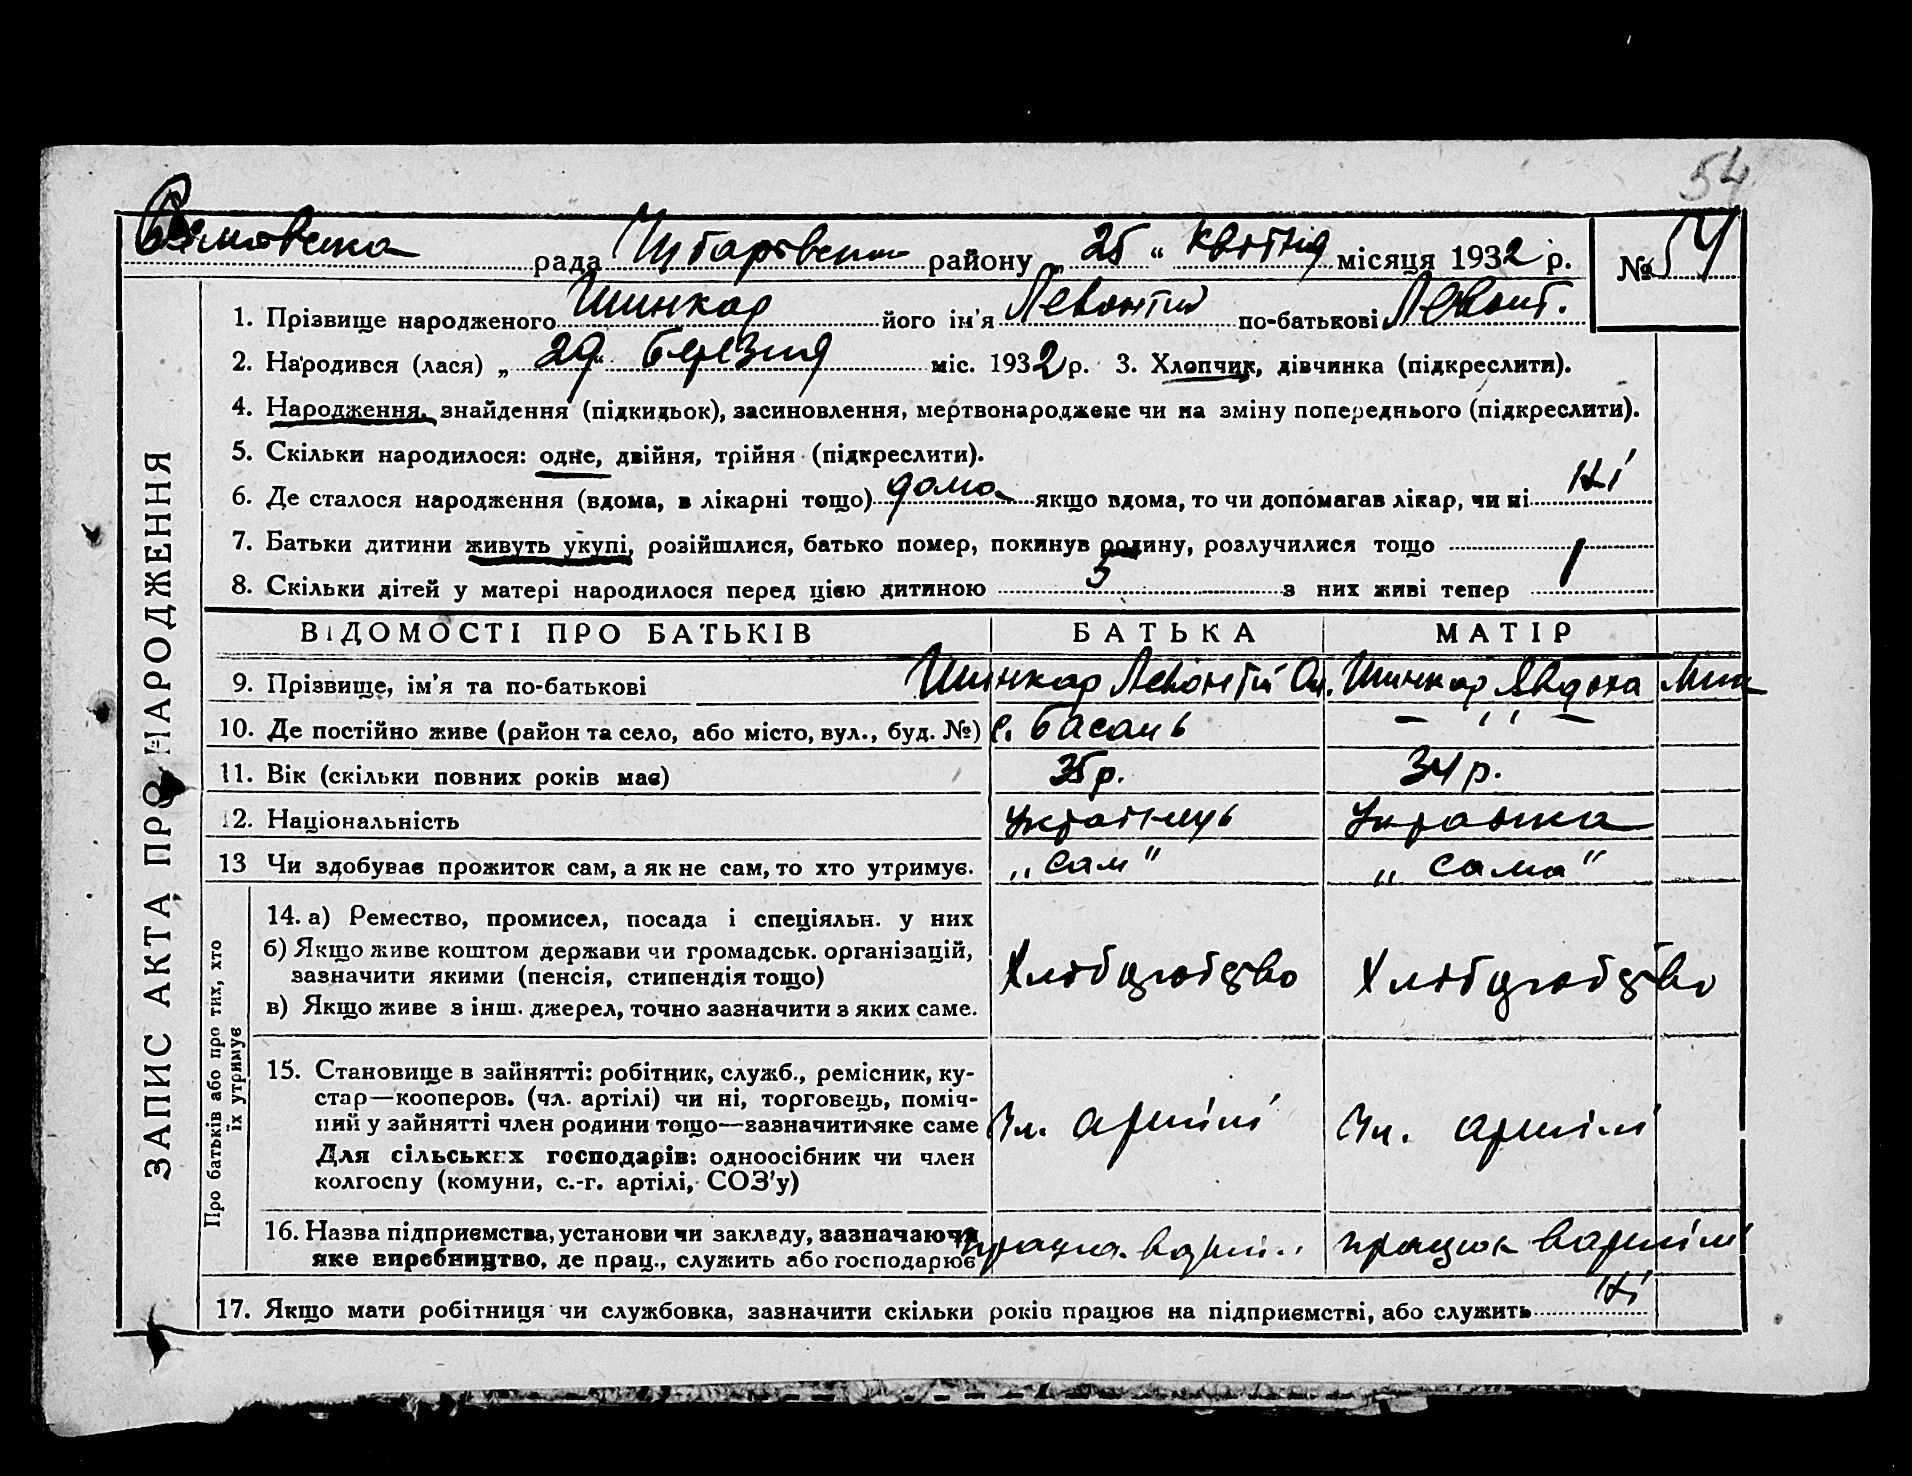 54
рада району „ 25 “ квітня місяця 1932 р. № 54
1. Прізвище народженого Шинкар його ім'я Левонтий по-батькові Левонт.
2. Народився (лася) „ 29 “ березня міс. 1932 р. 3. Хлопчик, дівчинка (підкреслити).
4. Народження, знайдення (підкидьок), засиновлення, мертвонароджене чи на зміну попереднього (підкреслити).
5. Скільки народилося: одне, двійня, трійня (підкреслити).
6. Де сталося народження (вдома, в лікарні тощо) дома якщо вдома, то чи допомагав лікар, чи ні Ні
7. Батьки дитини живуть укупі, розійшлися, батько помер, покинув родину, розлучилися тощо
8. Скільки дітей у матері народилося перед цією дитиною 5 з них живі тепер 1
ВІДОМОСТІ ПРО БАТЬКІВ БАТЬКА МАТІР
9. Прізвище, ім'я та по-батькові Шинкар Левонтій Ол. Шинкар Явдоха
10. Де постійно живе (район та село, або місто, вул., буд. №) с. Басань — ,, —
11. Вік (скільки повних років має) 35 р. 34 р.
12. Національність Українець Українка
13 Чи здобував прожиток сам, а як не сам, то хто утримує. „сам" „сама"
14. а) Ремество, промисел, посада і спеціяльн. у них
б) Якщо живе коштом держави чи громадськ. організацій,
зазначити якими (пенсія, стипендія тощо) Хліборобство Хліборобство
в) Якщо живе з інш. джерел, точно зазначити з яких саме.
15. Становище в зайнятті: робітник, служб., ремісник, ку-
стар—кооперов. (чл. артілі) чи ні, торговець, поміч-
ний у зайнятті член родини тощо—зазначити яке саме Чл. артілі Чл. артілі
Для сільських господарів: одноосібник чи член
колгоспу (комуни, с.-г. артілі, СОЗ'у)
16. Назва підприємства, установи чи закладу, зазначаючи
яке виребництво, де прац., служить або господарює працює в артілі працює в артілі
17. Якщо мати робітниця чи службовка, зазначити скільки років працює на підприємстві, або служить Ні
ЗАПИС АКТА ПРО НАРОДЖЕННЯ
Про батьків або про тих, хто
їх утримує